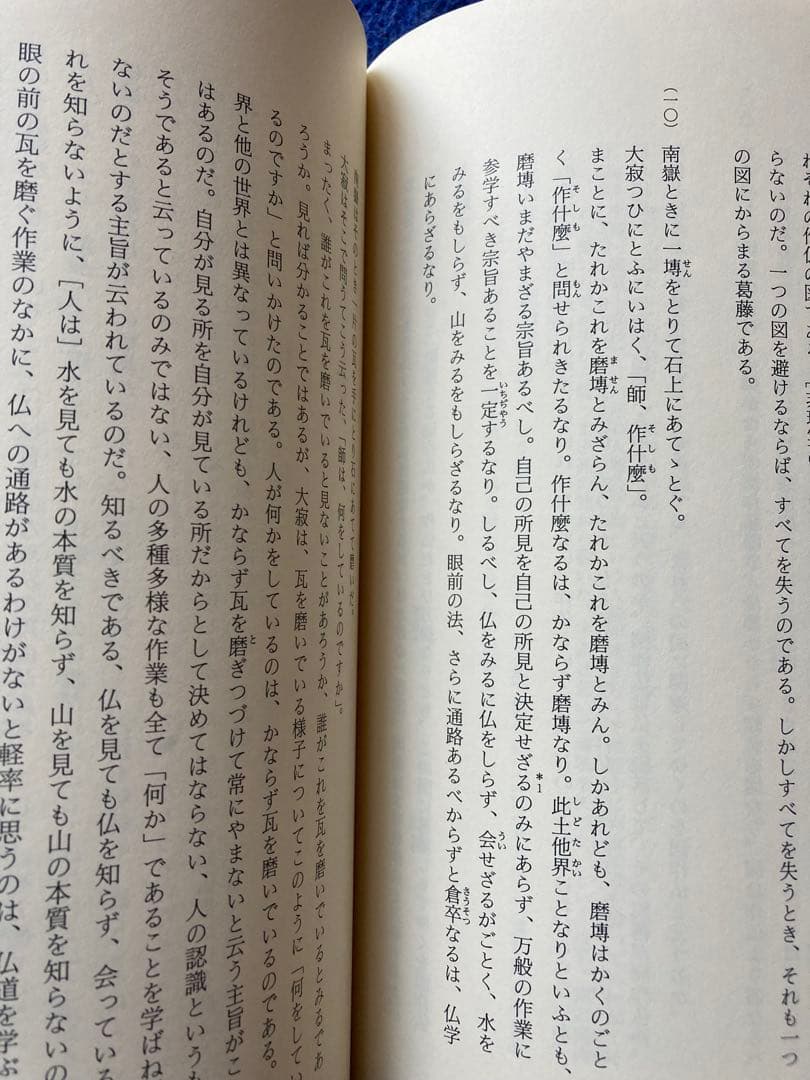 らないのだ。一つの図を避けるならば、すべてを失う。しかしすべてを失うとき、それも一つ
の図にからまる葛藤である。
(一〇) 南嶽ときに一塼をとりて石上にあてゝとぐ。
大寂つひにとふにいはく、「師、作什麼」。
まことに、たれかこれを磨塼とみざらん、たれかこれを磨塼とみん。しかあれども、磨塼はかくのごと
く「作什麼」と問せられきたるなり。作什麼なるは、かならず磨塼なり。此土他界ことなりといふとも、
磨塼いまだやまざる宗旨あるべし。自己の所見を自己の所見と決定せざる*1のみにあらず、万般の作業に
参学すべき宗旨あることを一定するなり。しるべし、仏をみるに仏をしらず、会せざるがごとく、水を
みるをもしらず、山をみるをもしらざるなり。眼前の法、さらに通路あるべからずと倉卒なるは、仏学
にあらざるなり。
南嶽はそのとき一片の瓦を手にとり石にあてて磨いだ。
大寂はそこで問うてこう云った、「師は、何をしているのですか」。
まったく、誰がこれを瓦を磨いでいると見ないことがあろうか、誰がこれを瓦を磨いでいるとみるであ
ろうか。見れば分かることではあるが、大寂は、瓦を磨いでいる様子についてこのように「何をしてい
るのですか」と問いかけたのである。人が何かをしているのは、かならず瓦を磨いでいるのである。
界と他の世界とは異なっているけれども、かならず瓦を磨ぎつづけて常にやまないと云う主旨がこ
はあるのだ。自分が見る所を自分が見ている所だからとして決めてはならない、人の認識というも
そうであると云っているのみではない、人の多種多様な作業も全て「何か」であることを学ばね
ないのだとする主旨が云われているのだ。知るべきである、仏を見ても仏を知らず、会っている
れを知らないように、[人は]水を見ても水の本質を知らず、山を見ても山の本質を知らないの
眼の前の瓦を磨ぐ作業のなかに、仏への通路があるわけがないと軽率に思うのは、仏道を学ぶ